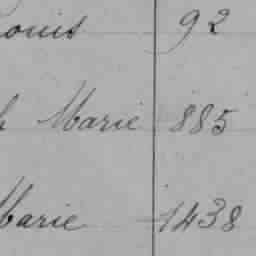 Louis 92
h Marie 885
Marie 1438